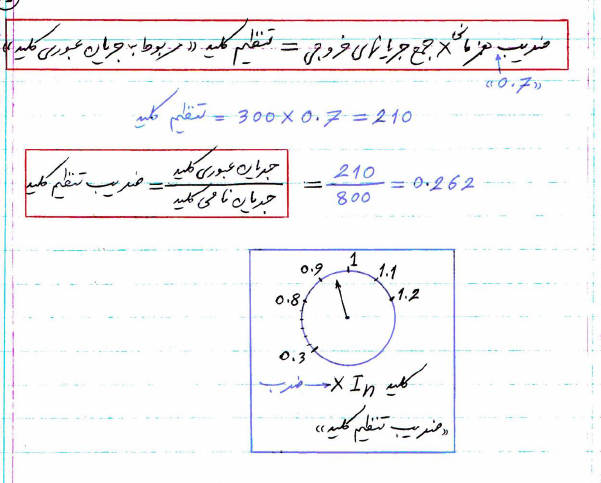 ضریب همزمانی × جمع جریانهای خروجی = تنظیم کلید «مربوط به جریان عبوری کلید»
«0.7»
تنظیم کلید = 300 × 0.7 = 210
ضریب تنظیم کلید = جریان عبوری کلید / جریان نامی کلید = 210 / 800 = 0.262
0.3 0.8 0.9 1 1.1 1.2
ضرب → × In کلید
«ضریب تنظیم کلید»